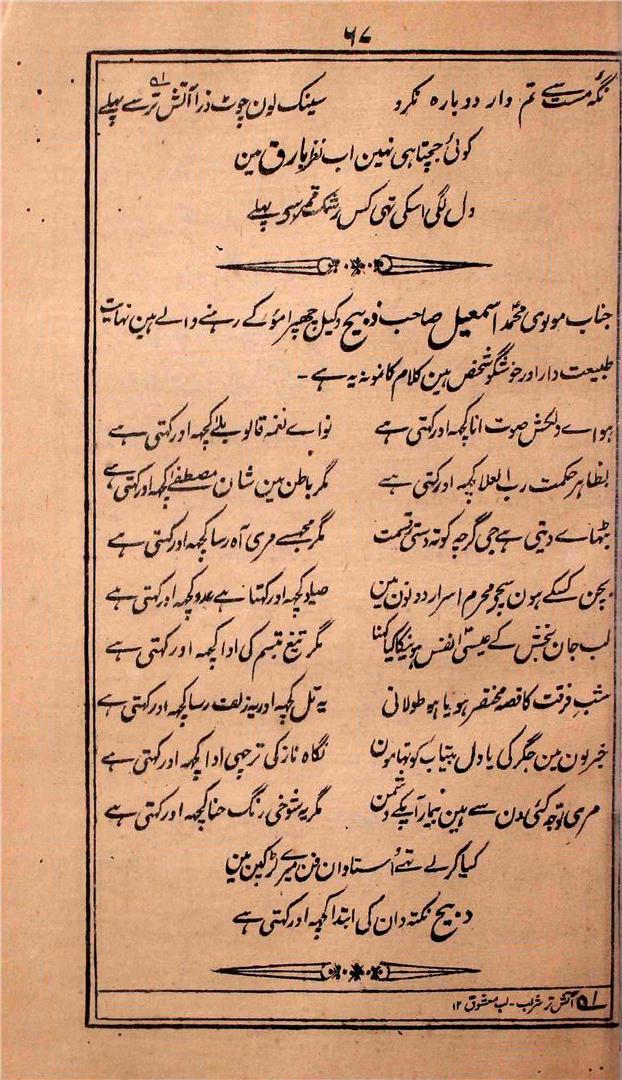 ۶۷
نگہ مست سے تم وار دوبارہ نکرو سینک لون چوٹ ذرا آتش تر سے پہلے
کوئی جچتا ہی نہین اب نظر بارق مین
دل لگی اسکی تہی کس رشک قمر سے پہلے
جناب مولوی محمد اسمعیل صاحب ذبیح وکیل چھپرا مؤ کے رہنے والے ہین نہایت
طبیعت دار اور خوشگو شخص ہین کلام کا نمونہ یہ ہے -
ہواے دلکش صوت انا کچہہ اور کہتی ہے نواے نغمہ قالو بلےٰ کچہہ اور کہتی ہے
بظاہر حکمت رب العلا کچہہ اور کہتی ہے مگر باطن مین شان مصطفےٰ کچہہ اور کہتی ہے
بٹہاے دیتی ہے جی گرچہ کوتہ دستی قسمت مگر مجہسے مری آہ رسا کچہہ اور کہتی ہے
سخن کسکے ہون سچ محرم اسرار دونون مین صیاد کچہہ اور کہتا ہے عدو کچہہ اور کہتی ہے
لب جان بخش کے عیسیٰ نفس ہونیکا کیا کہنا مگر تیغ تبسم کی ادا کچہہ اور کہتی ہے
شب فرقت کا قصہ مختصر ہو یا ہو طولانی یہ تل کچہہ اور یہ زلف رسا کچہہ اور کہتی ہے
خبر یون مین جگر کی یا دل بیتاب کو تہامون نگاہ ناز کی ترچہی ادا کچہہ اور کہتی ہے
مری توجہ کئی دن سے ہین بیمار آپکے دشمن مگر یہ شوخی رنگ حنا کچہہ اور کہتی ہے
کہا کرلے تہے اُستادان فن میرے لڑکپن مین
ذبیح نکتہ دان کی ابتدا کچہہ اور کہتی ہے
۵۱ آتش تر شراب - لب معشوق ۱۲